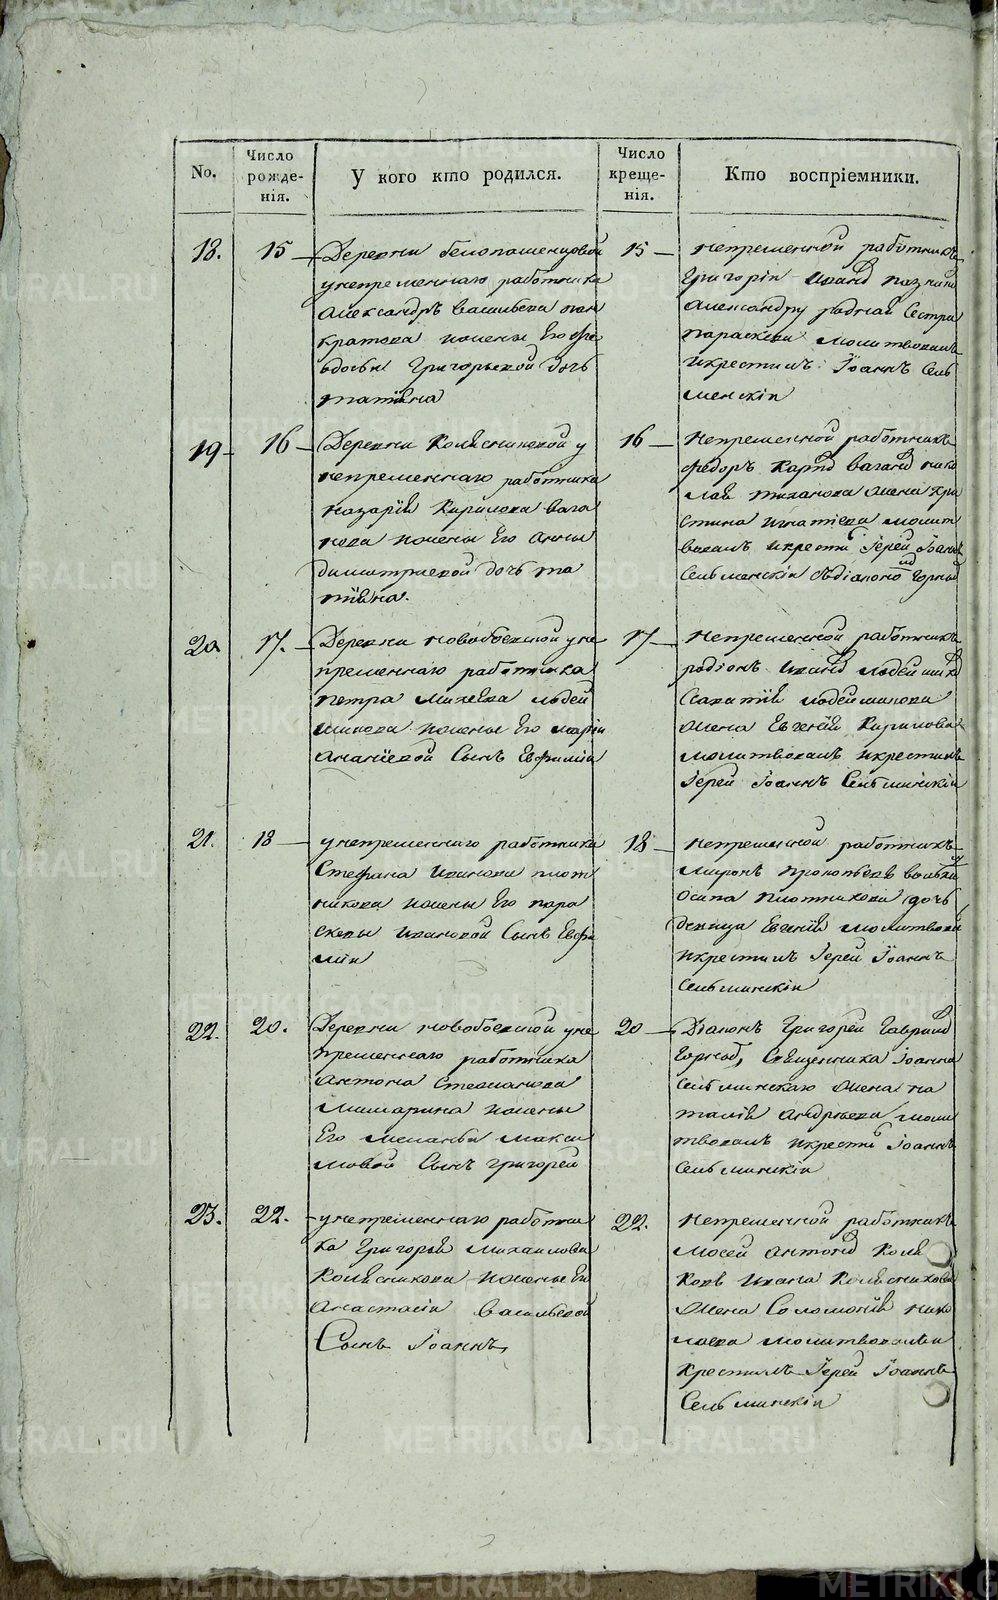 No.
Число рожде-нія.
У кого кто родился.
Число креще-нія.
Кто воспріемники.
18.
15
Деревни белопашенцовой
унепременнаго работника
Александръ васильева пан
кратова ижены Его фе
Григорьевой дочь
татіяна
15
непременной работникъ
Григорій Иванд
Александру роднай Сестра
параскева молитвовалъ
икрестилъ Іоаннъ Сель
менскіи
19
16
Деревни Колясниковой у
непременнаго работника
назарій Кирилова вага
нова ижены Его Анны
димитриевой дочь та
тіяна.
16
Непременной работникъ
федоръ вагано нико
лай жена хри
стина игнатіева молит
вовалъ икрести Іерей Іоаннъ
Сельменскіи Сдіакономъ Горныд
20
17.
Деревни новобоевской уне
пременнаго работника
петра михеева людей
щикова ижены Его маріи
Ананіевой Сынъ Евфиміи
17
Непременной работникъ
родіонъ иванд людейщико
Саватій людейщикова
Жена Евгенія Кирилова
молитвовалъ икрестилъ
Іерей Іоаннъ Сельминскіи
21.
18
унепременнаго работника
Стефана Иванова плот
никова ижены Его пара
скевы Ивановой Сынъ Евфи
міи
18
Непременной работникъ
миронъ прокопьевъ
Осипа плотникова дочь
девица Евгенія молитвовалъ
икрестилъ Іерей Іоаннъ
Сельминскіи
22.
20.
Деревни новобоевской уне
пременнаго работника
Антона Степанова
Мишарина ижены
Его меланьи макси
мовой Сынъ григорей
20
Діаконъ Григорей Гаврилд
Горныд, Священника Іоанна
Сельминскаго Жена на
талія Андреева моли
твовалъ икрести Іоаннъ
Сельминскіи
23.
22.
унепременнаго работни
ка Григорья михаилова
Колясникова ижены Его
Анастасіи васильевой
Сынъ Іоаннъ
22.
Непременной работникъ
мосей антонд Коля
Ковъ Ивана Колясникова
Жена Соломонія нико
лаева молитвовалъ и
крестилъ Іерей Іоаннъ
Сельминскіи
METRIKI.GASO-URAL.RU